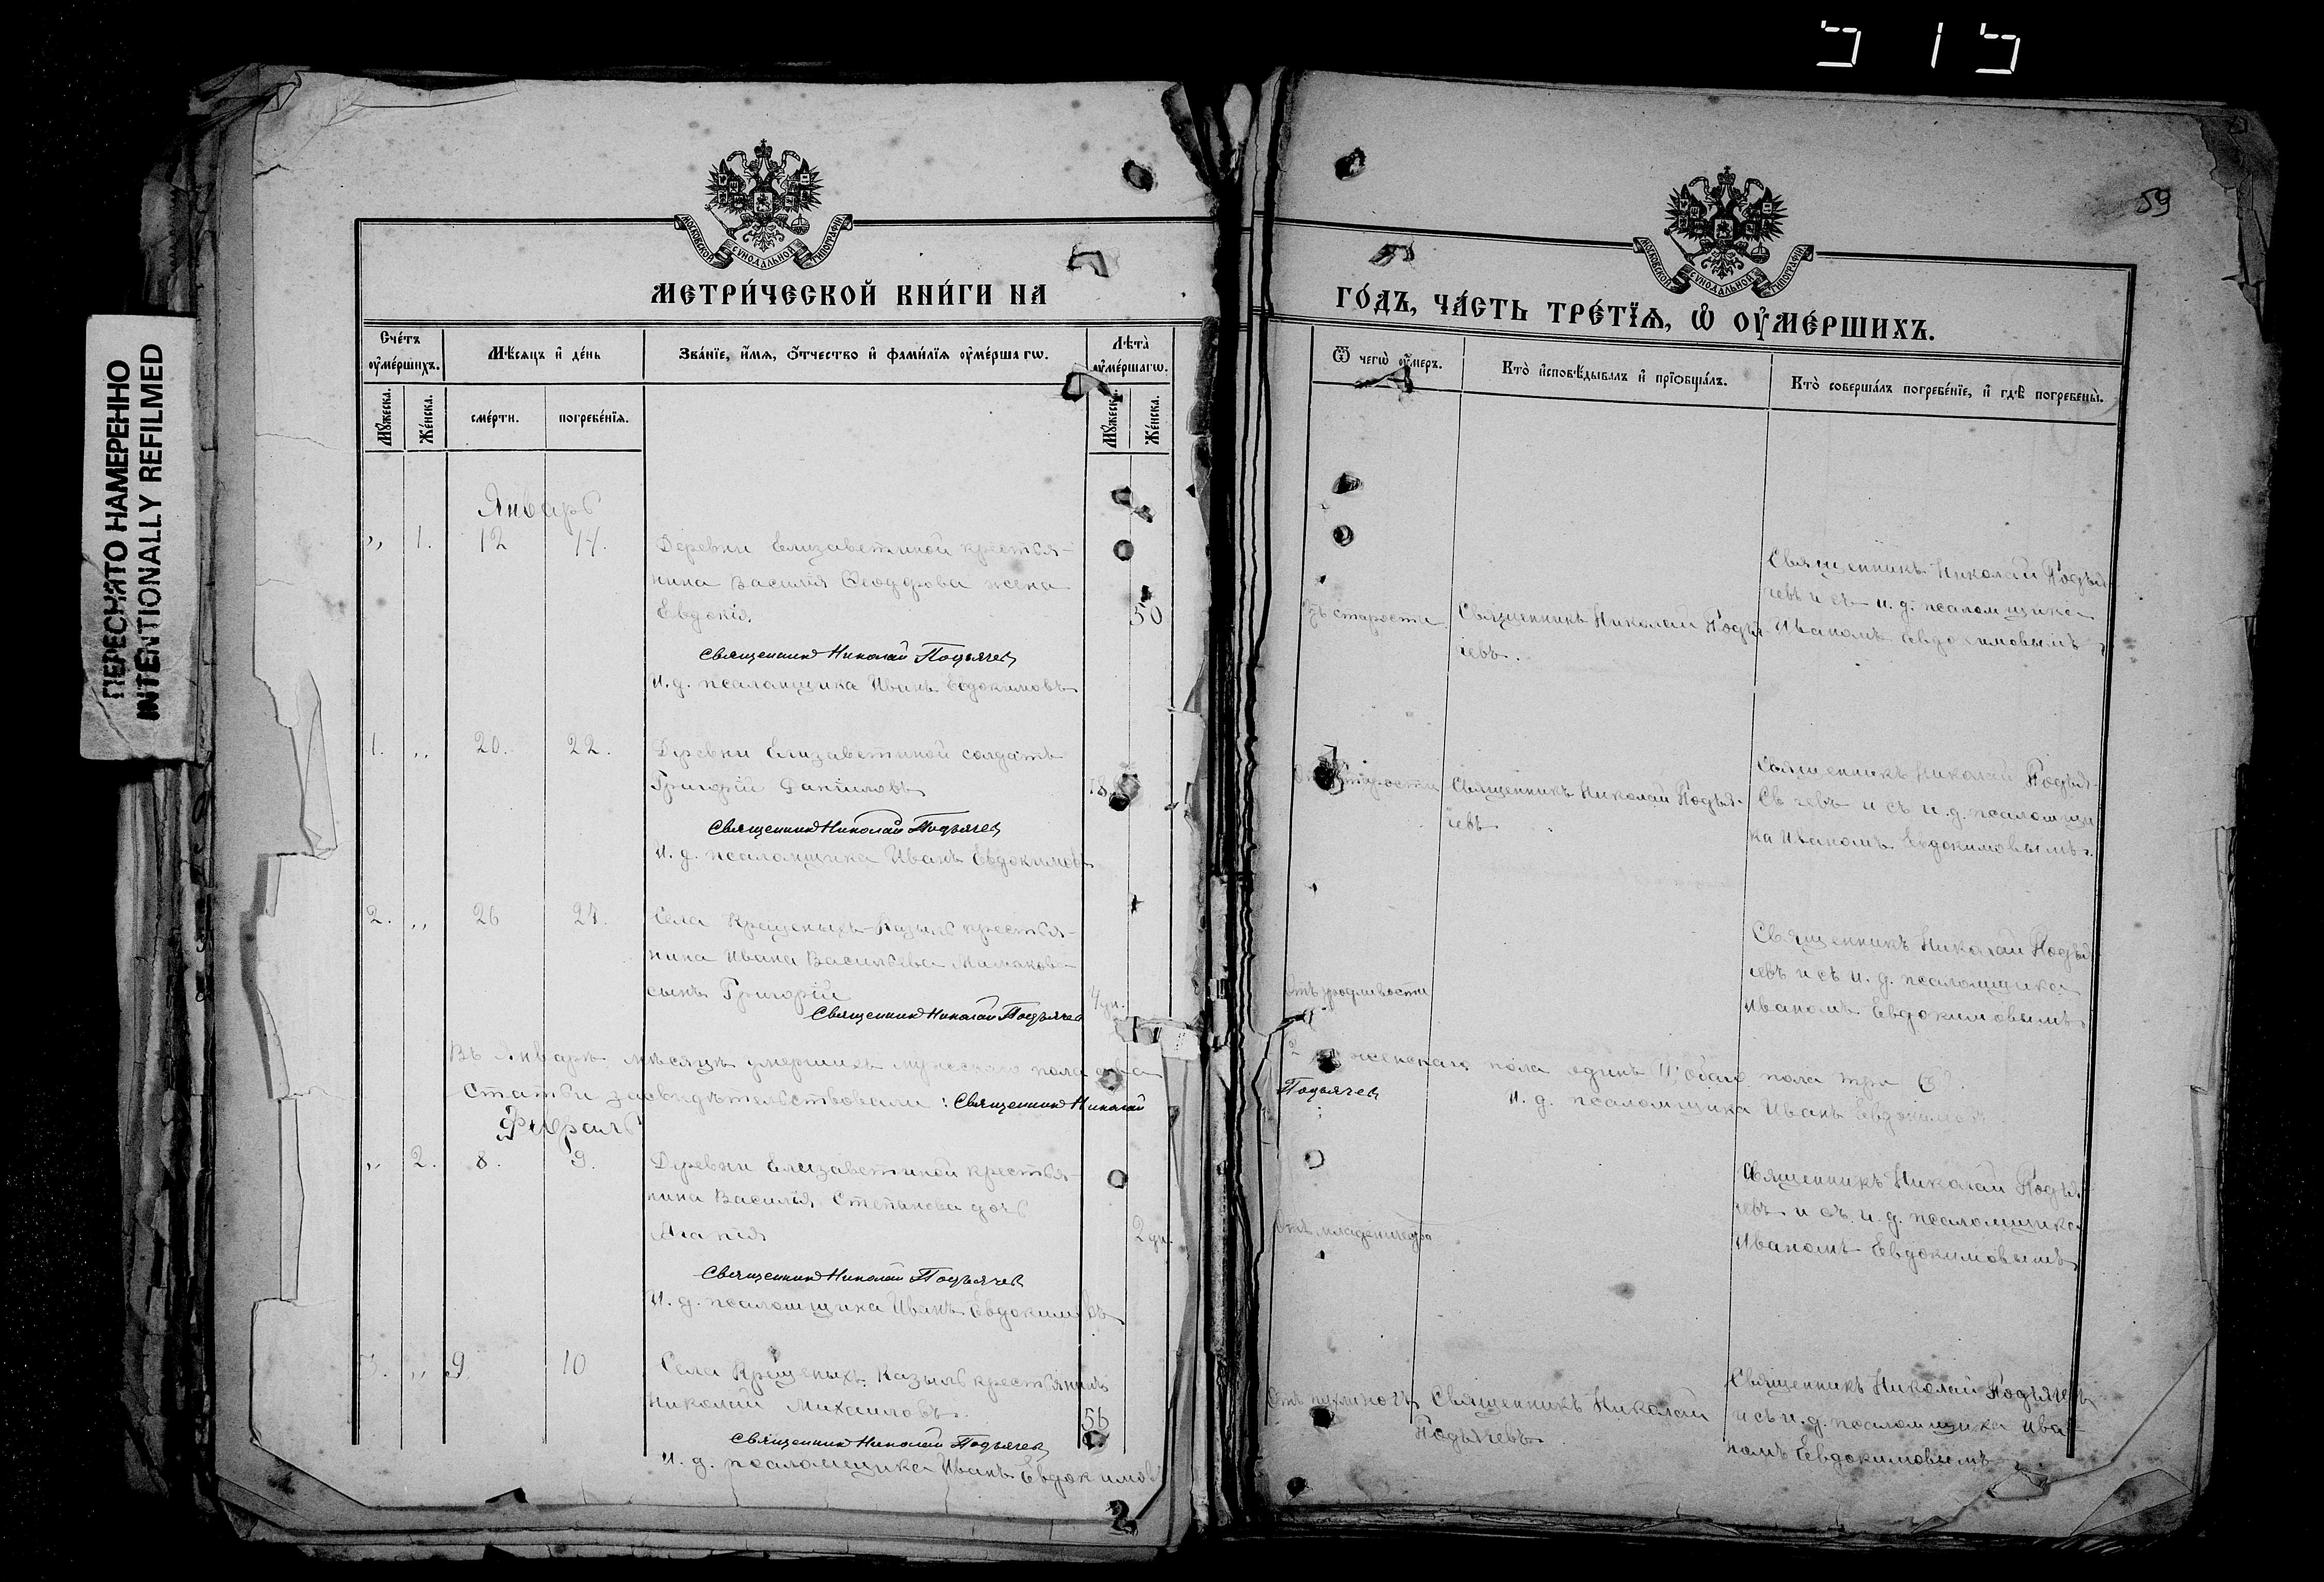 ПЕРЕСНЯТО НАМЕРЕННО
INTENTIONALLY REFILMED
МОСКОВСКОЙ СѴНОДАЛЬНОЙ ТИПОГРАФІИ
МЕТРИ́ЧЕСКОЙ КНИ́ГИ НА
Сче́тъ
оу҆ме́ршихъ.
Мѣ́сяцъ и҆ де́нь
Зва́нїе, и҆́мѧ, ѻ҆́тчество и҆ фами́лїѧ оу҆ме́ршагѡ.
Лѣ́та
оу҆ме́ршагѡ.
Мꙋ́жеска.
Же́нска.
сме́рти.
погребе́нїѧ.
Мꙋ́жеска.
Же́нска.
Январь
,, 1. 12 14. Деревни Елизаветиной крестья-
нина Василія Ѳеодорова жена
Евдокія 50
Священникъ Николай Подъячев
И. д. псаломщика Иванъ Евдокимовъ
1. ,, 20. 22. Деревни Елизаветиной солдатъ
Григорій Даніиловъ
Священникъ Николай Подъячев
И. д. псаломщика Иванъ Евдокимовъ
2. ,, 26 27. Села Крещеныхъ-Казыль крестья-
нина Ивана Васильева
сынъ Григорій
Священникъ Николай Подъячев
Въ Январѣ мѣсяцѣ умершихъ мужескаго пола два
Статьи засвидѣтельствовали: Священникъ Николай
Февраль
,, 2. 8. 9. Деревни Елизаветиной крестья-
нина Василія Степанова дочь
Агапія 2 дн.
Священникъ Николай Подъячев
И. д. псаломщика Иванъ Евдокимовъ
3. ,, 9. 10 Села Крещеныхъ Казыль крестьянинъ
Николай Михаиловъ. 56
Священникъ Николай Подъячев
И. д. псаломщика Иванъ Евдокимовъ
2
59
МОСКОВСКОЙ СѴНОДАЛЬНОЙ ТИПОГРАФІИ
ГО́ДЪ, ЧА́СТЬ ТРЕ́ТЇѦ, Ѡ҆ ОУ҆МЕ́РШИХЪ.
Ѿ чегѡ̀ оу҆́меръ.
Кто̀ и҆сповѣ́дывалъ и҆ прїѡбща́лъ.
Кто̀ соверша́лъ погребе́нїе, и҆ гдѣ̀ погребены̀.
Священникъ Николай Подъя-
чевъ и съ и. д. псаломщика
Иваномъ Евдокимовымъ
старости Священникъ Николай Подъя-
чевъ.
Священникъ Николай Подъя-
чевъ и съ и. д. псаломщи
ка Иваномъ Евдокимовымъ.
старости Священникъ Николай Подъя-
чевъ
Священникъ Николай Подъя
чевъ и съ и. д. псаломщика
Иваномъ Евдокимовымъ
женскаго пола одинъ обоего пола три
Подъячев
И. д. псаломщика Иванъ Евдокимовъ
Священникъ Николай Подъя-
чевъ и съ и. д. псаломщика
Иваномъ Евдокимовымъ
Отъ младенчества
Священникъ Николай
Подъячевъ.
Священникъ Николай Подъячевъ
и съ и. д. псаломщика Ива-
номъ Евдокимовымъ